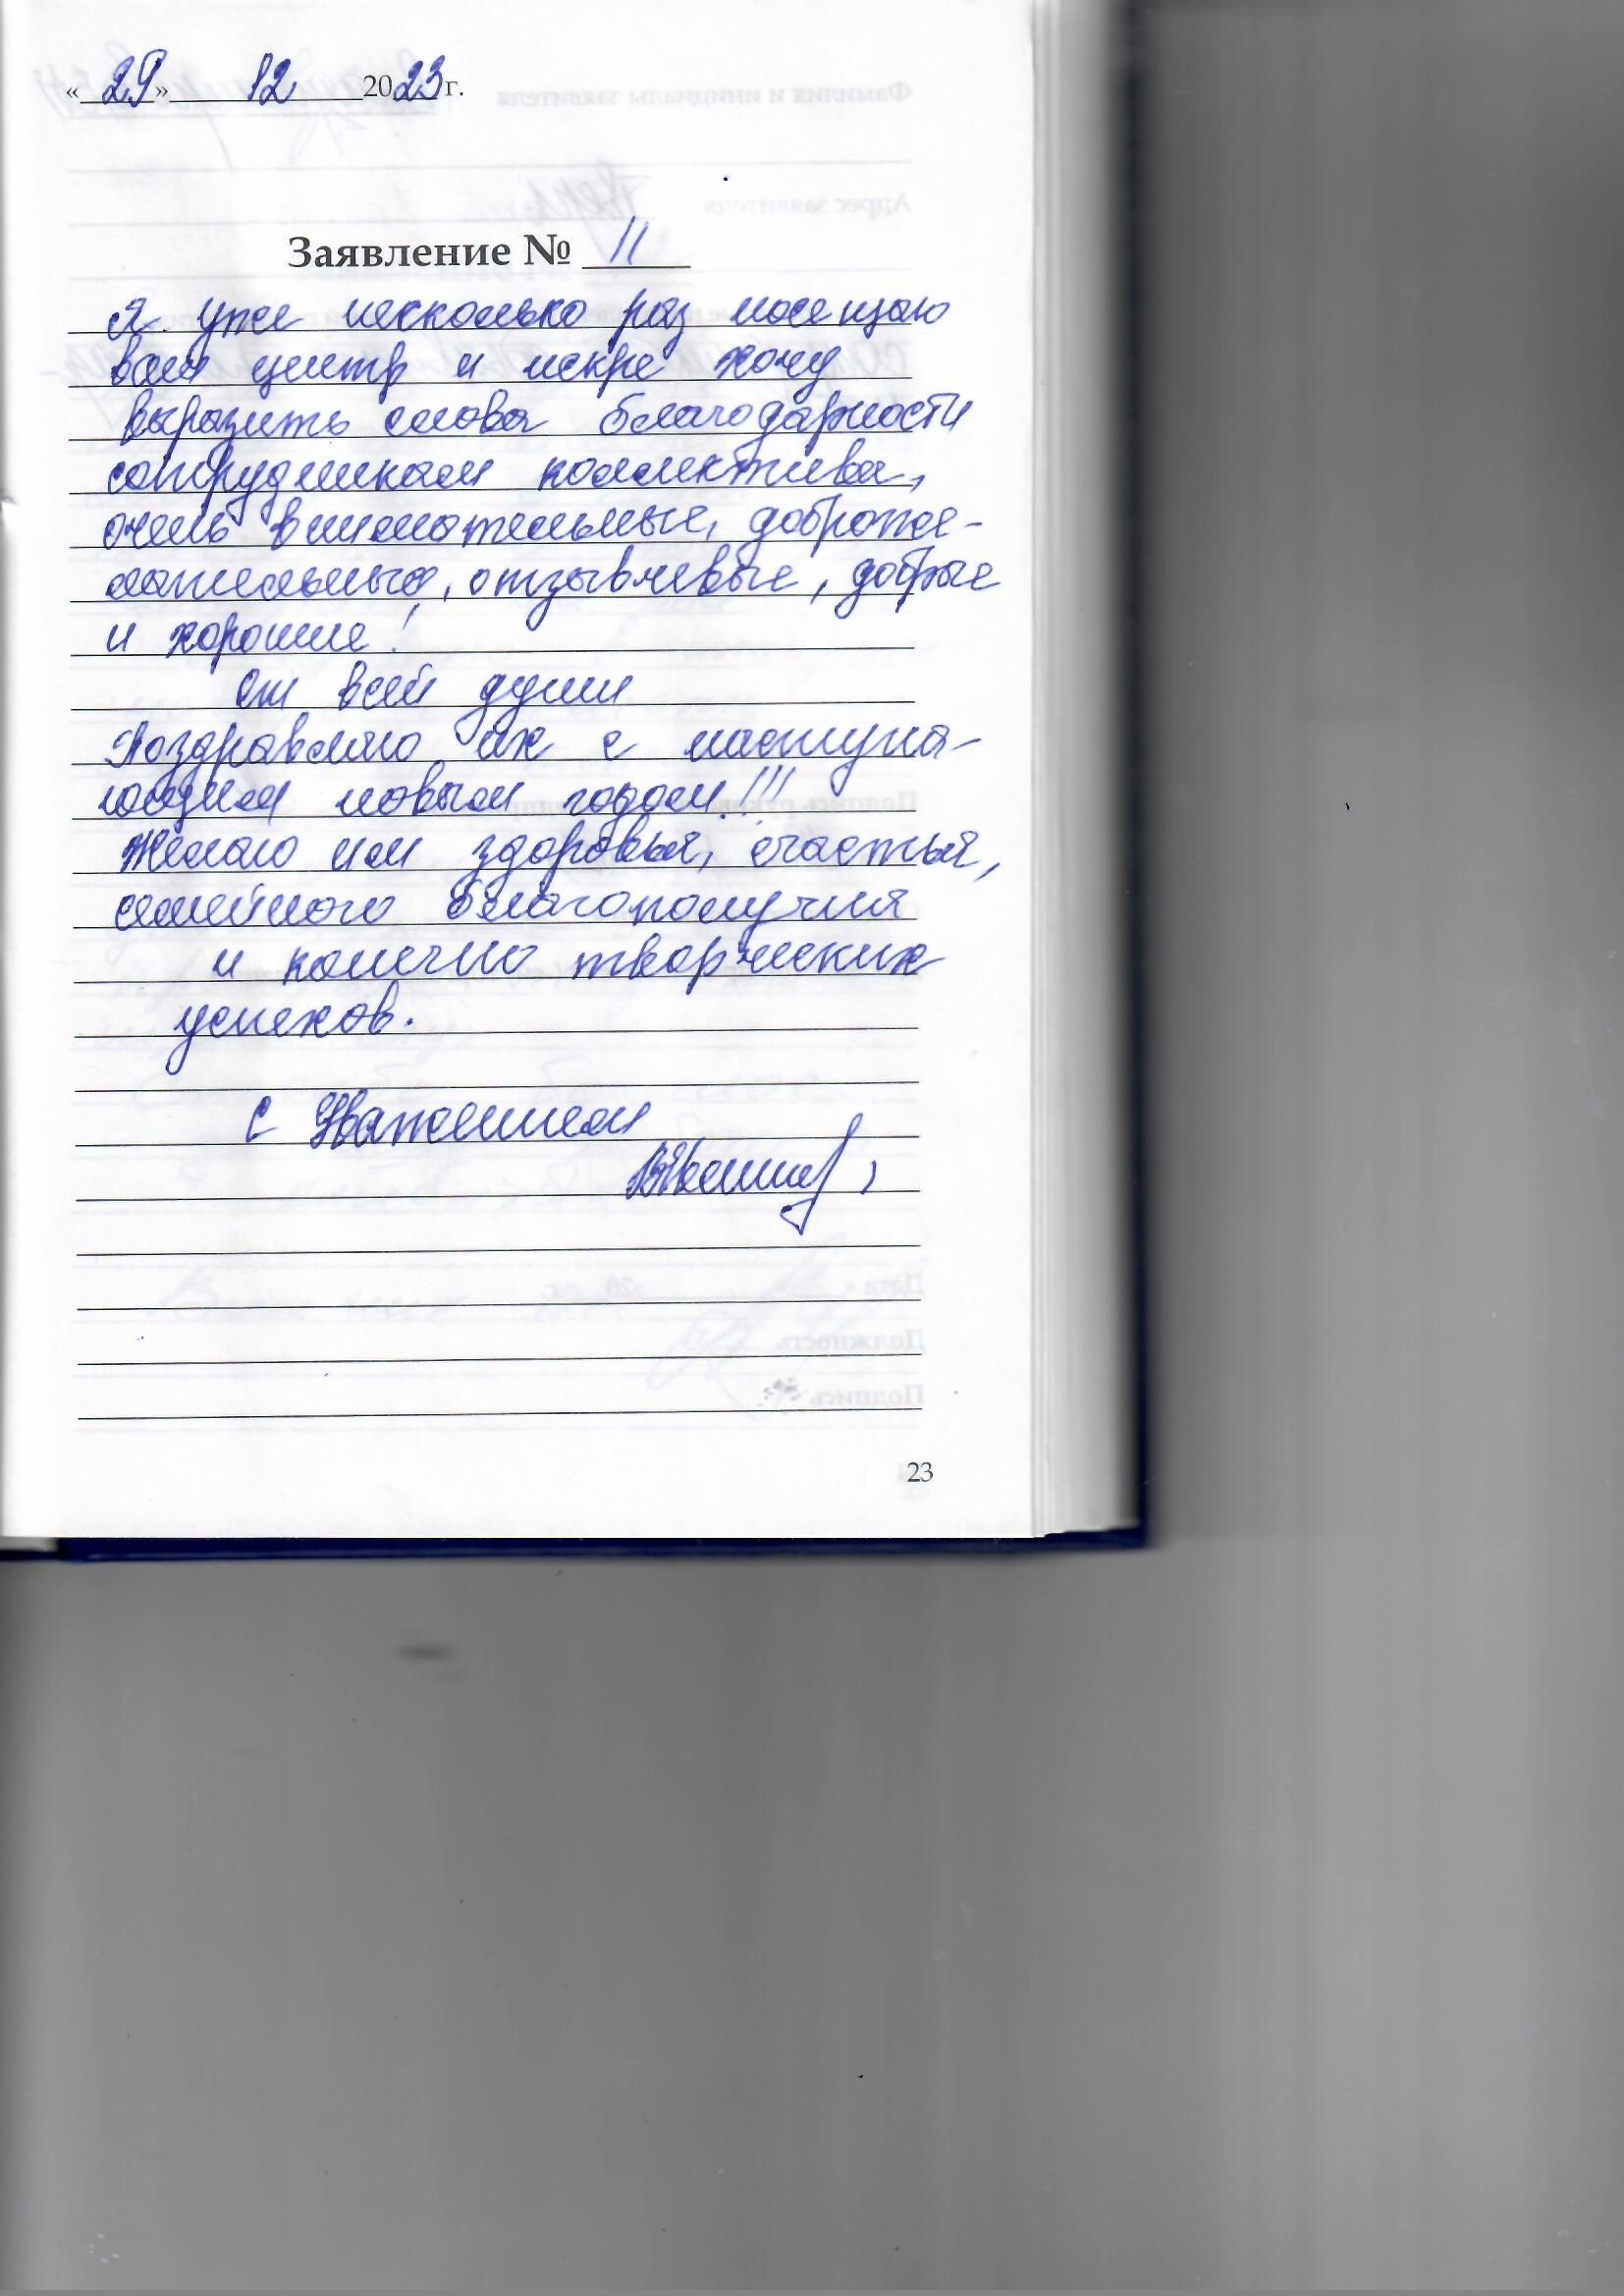 «29» 12 2023 г.
Заявление № 11
Я уже несколько раз посещаю
ваш центр и искре хочу
выразить слова благодарности
сотрудникам коллектива,
очень внимательные, доброже-
лательные, отзывчевые, добрые
и хорошие!
От всей души
Поздравляю их с наступа-
ющим новым годом!!!
Желаю им здоровья, счастья,
семейного благополучия
и конечно творческих
успехов.
С Уважением
23